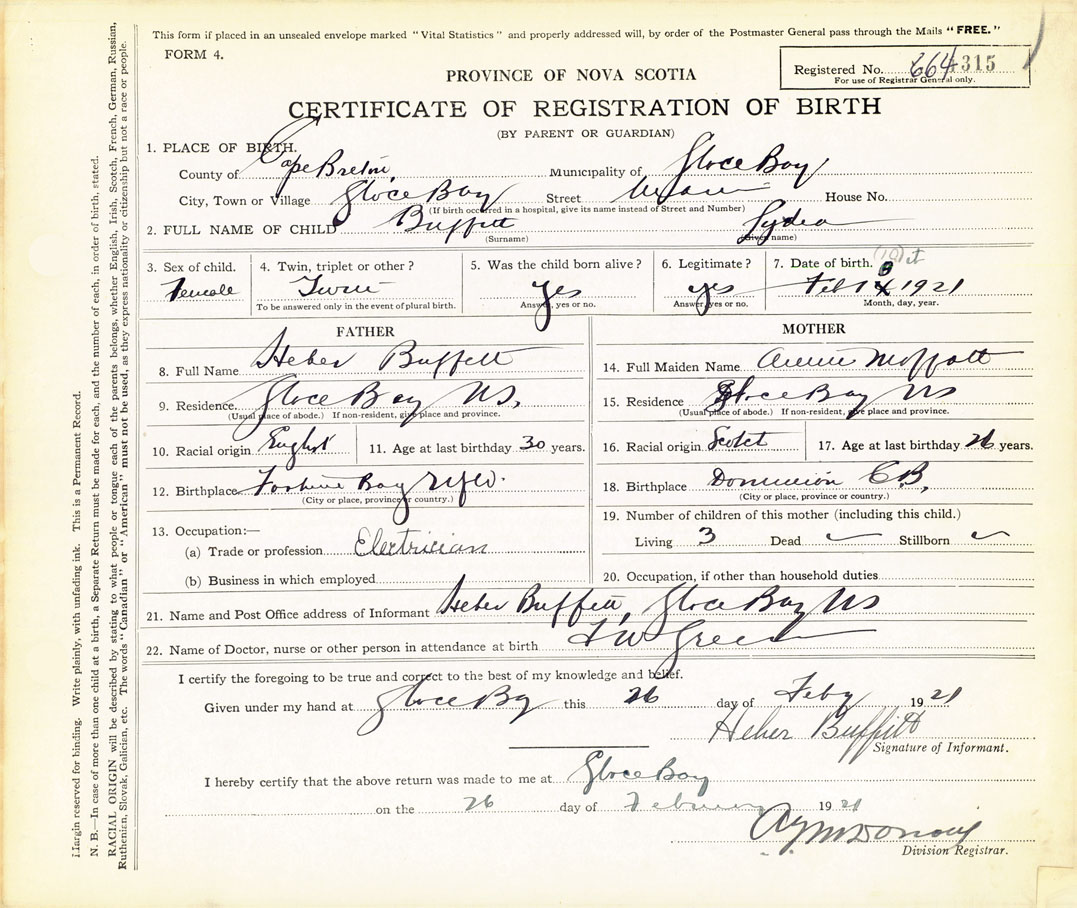 This form if placed in an unsealed envelope marked "Vital Statistics" and properly addressed will, by order of the Postmaster General pass through the Mails "FREE."
FORM 4.
Registered No. 664 315
For use of Registrar General only.
PROVINCE OF NOVA SCOTIA
CERTIFICATE OF REGISTRATION OF BIRTH
(BY PARENT OR GUARDIAN)
1. PLACE OF BIRTH.
County of Cape Breton Municipality of Glace Bay
City, Town or Village Glace Bay Street House No.
(If birth occurred in a hospital, give its name instead of Street and Number)
2. FULL NAME OF CHILD Buffett Lydea
(Surname) (Given name)
3. Sex of child. 4. Twin, triplet or other? 5. Was the child born alive? 6. Legitimate? 7. Date of birth.
Female Twin Yes yes Feb 1921
To be answered only in the event of plural birth. Answer, yes or no. Answer, yes or no. Month, day, year.
FATHER
8. Full Name Heber Buffett
9. Residence Glace Bay NS,
(Usual place of abode.) If non-resident, give place and province.
10. Racial origin English 11. Age at last birthday 30 years.
12. Birthplace Fortune Bay Nfld.
(City or place, province or country.)
13. Occupation:—
(a) Trade or profession Electrician
(b) Business in which employed
MOTHER
14. Full Maiden Name Annie Moffatt
15. Residence Glace Bay NS
(Usual place of abode.) If non-resident, give place and province.
16. Racial origin Scotch 17. Age at last birthday 26 years.
18. Birthplace Dominion C.B.
(City or place, province or country.)
19. Number of children of this mother (including this child.)
Living 3 Dead Stillborn
20. Occupation, if other than household duties
21. Name and Post Office address of Informant Heber Buffett, Glace Bay NS
22. Name of Doctor, nurse or other person in attendance at birth Green
I certify the foregoing to be true and correct to the best of my knowledge and belief.
Given under my hand at Glace Bay this 26 day of Feby 1921
Heber Buffett
Signature of Informant.
I hereby certify that the above return was made to me at Glace Bay
on the 26 day of February 1921
Division Registrar.
Margin reserved for binding. Write plainly, with unfading ink. This is a Permanent Record.
N. B.—In case of more than one child at a birth, a Separate Return must be made for each, and the number of each, in order of birth, stated.
RACIAL ORIGIN will be described by stating to what people or tongue each of the parents belongs, whether English, Irish, Scotch, French, German, Russian,
Ruthenian, Slovak, Galician, etc. The words "Canadian" or "American" must not be used, as they express nationality or citizenship but not a race or people.